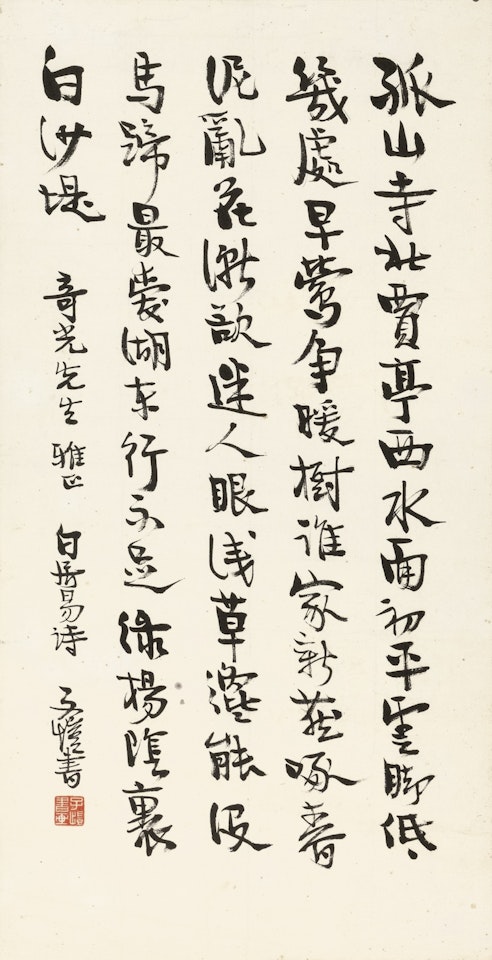 孤山寺北賈亭西水面初平雲脚低
幾處早鶯争暖樹誰家新燕啄春
泥亂花漸欲迷人眼浅草纔能没
馬蹄最愛湖东行不足緑楊陰裏
白沙堤 奇光先生雅正 白居易诗 子愷書
子愷書畫